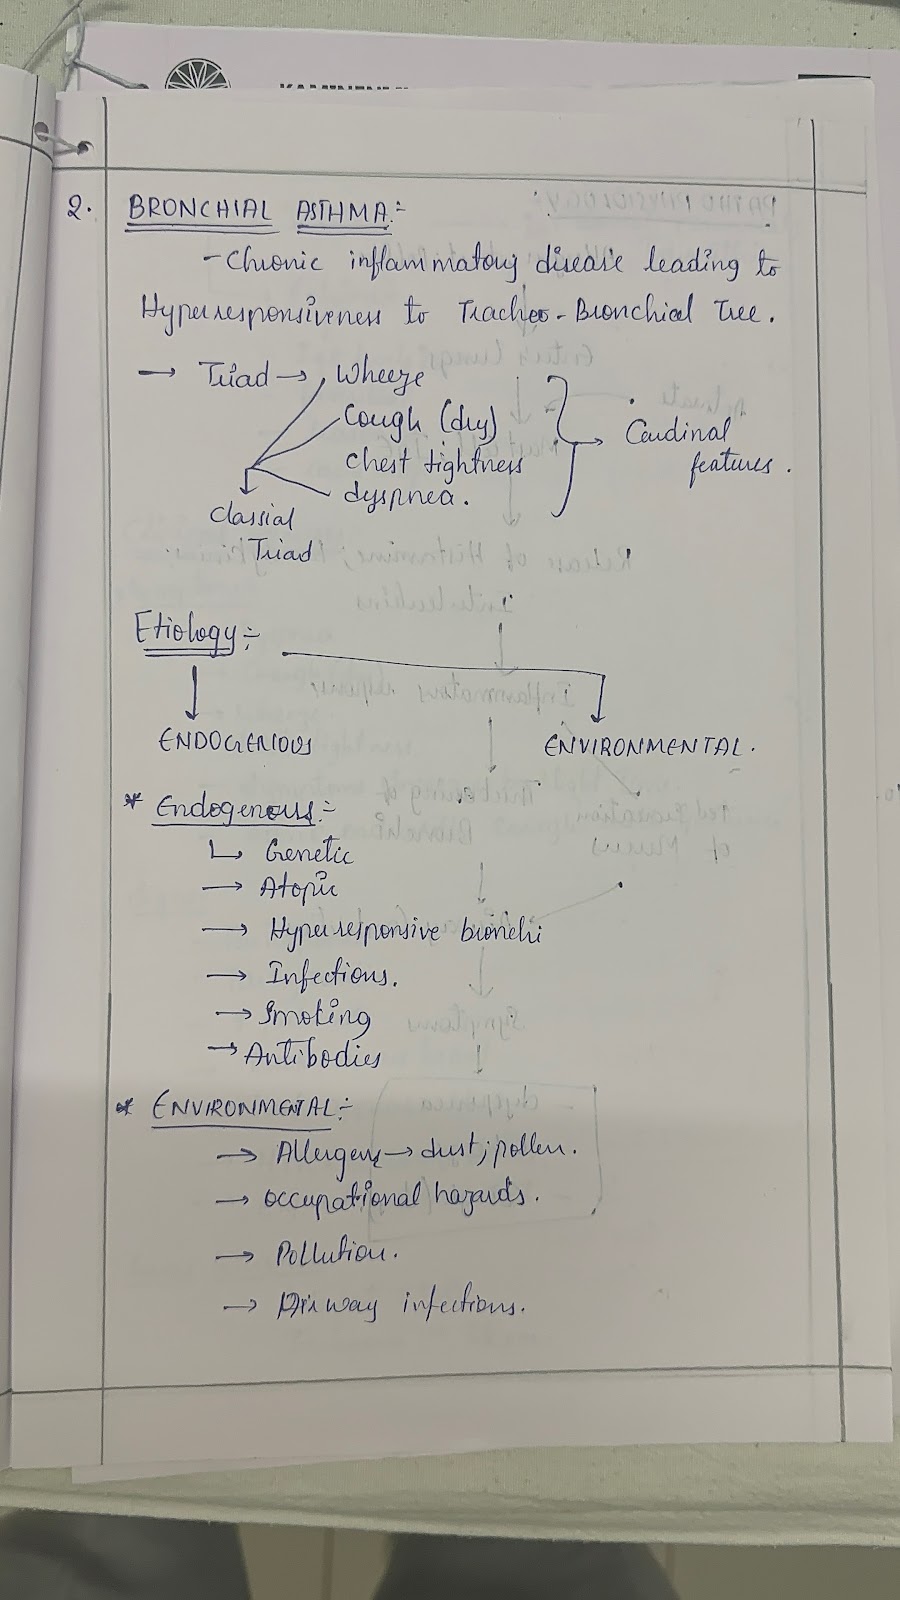 2. BRONCHIAL ASTHMA:-
- Chronic inflammatory disease leading to
Hyperresponsiveness to Tracheo - Bronchial Tree.
→ Triad → Wheeze
Cough (dry)
chest tightness
dyspnea.
Cardinal
features.
Classial
Triad
Etiology:-
ENDOGENIOUS
ENVIRONMENTAL.
* Endogenous:-
↳ Genetic
→ Atopic
→ Hyperresponsive bronchi
→ Infections.
→ Smoking
→ Antibodies
* ENVIRONMENTAL:-
→ Allergens → dust; pollen.
→ occupational hazards.
→ Pollution.
→ Airway infections.